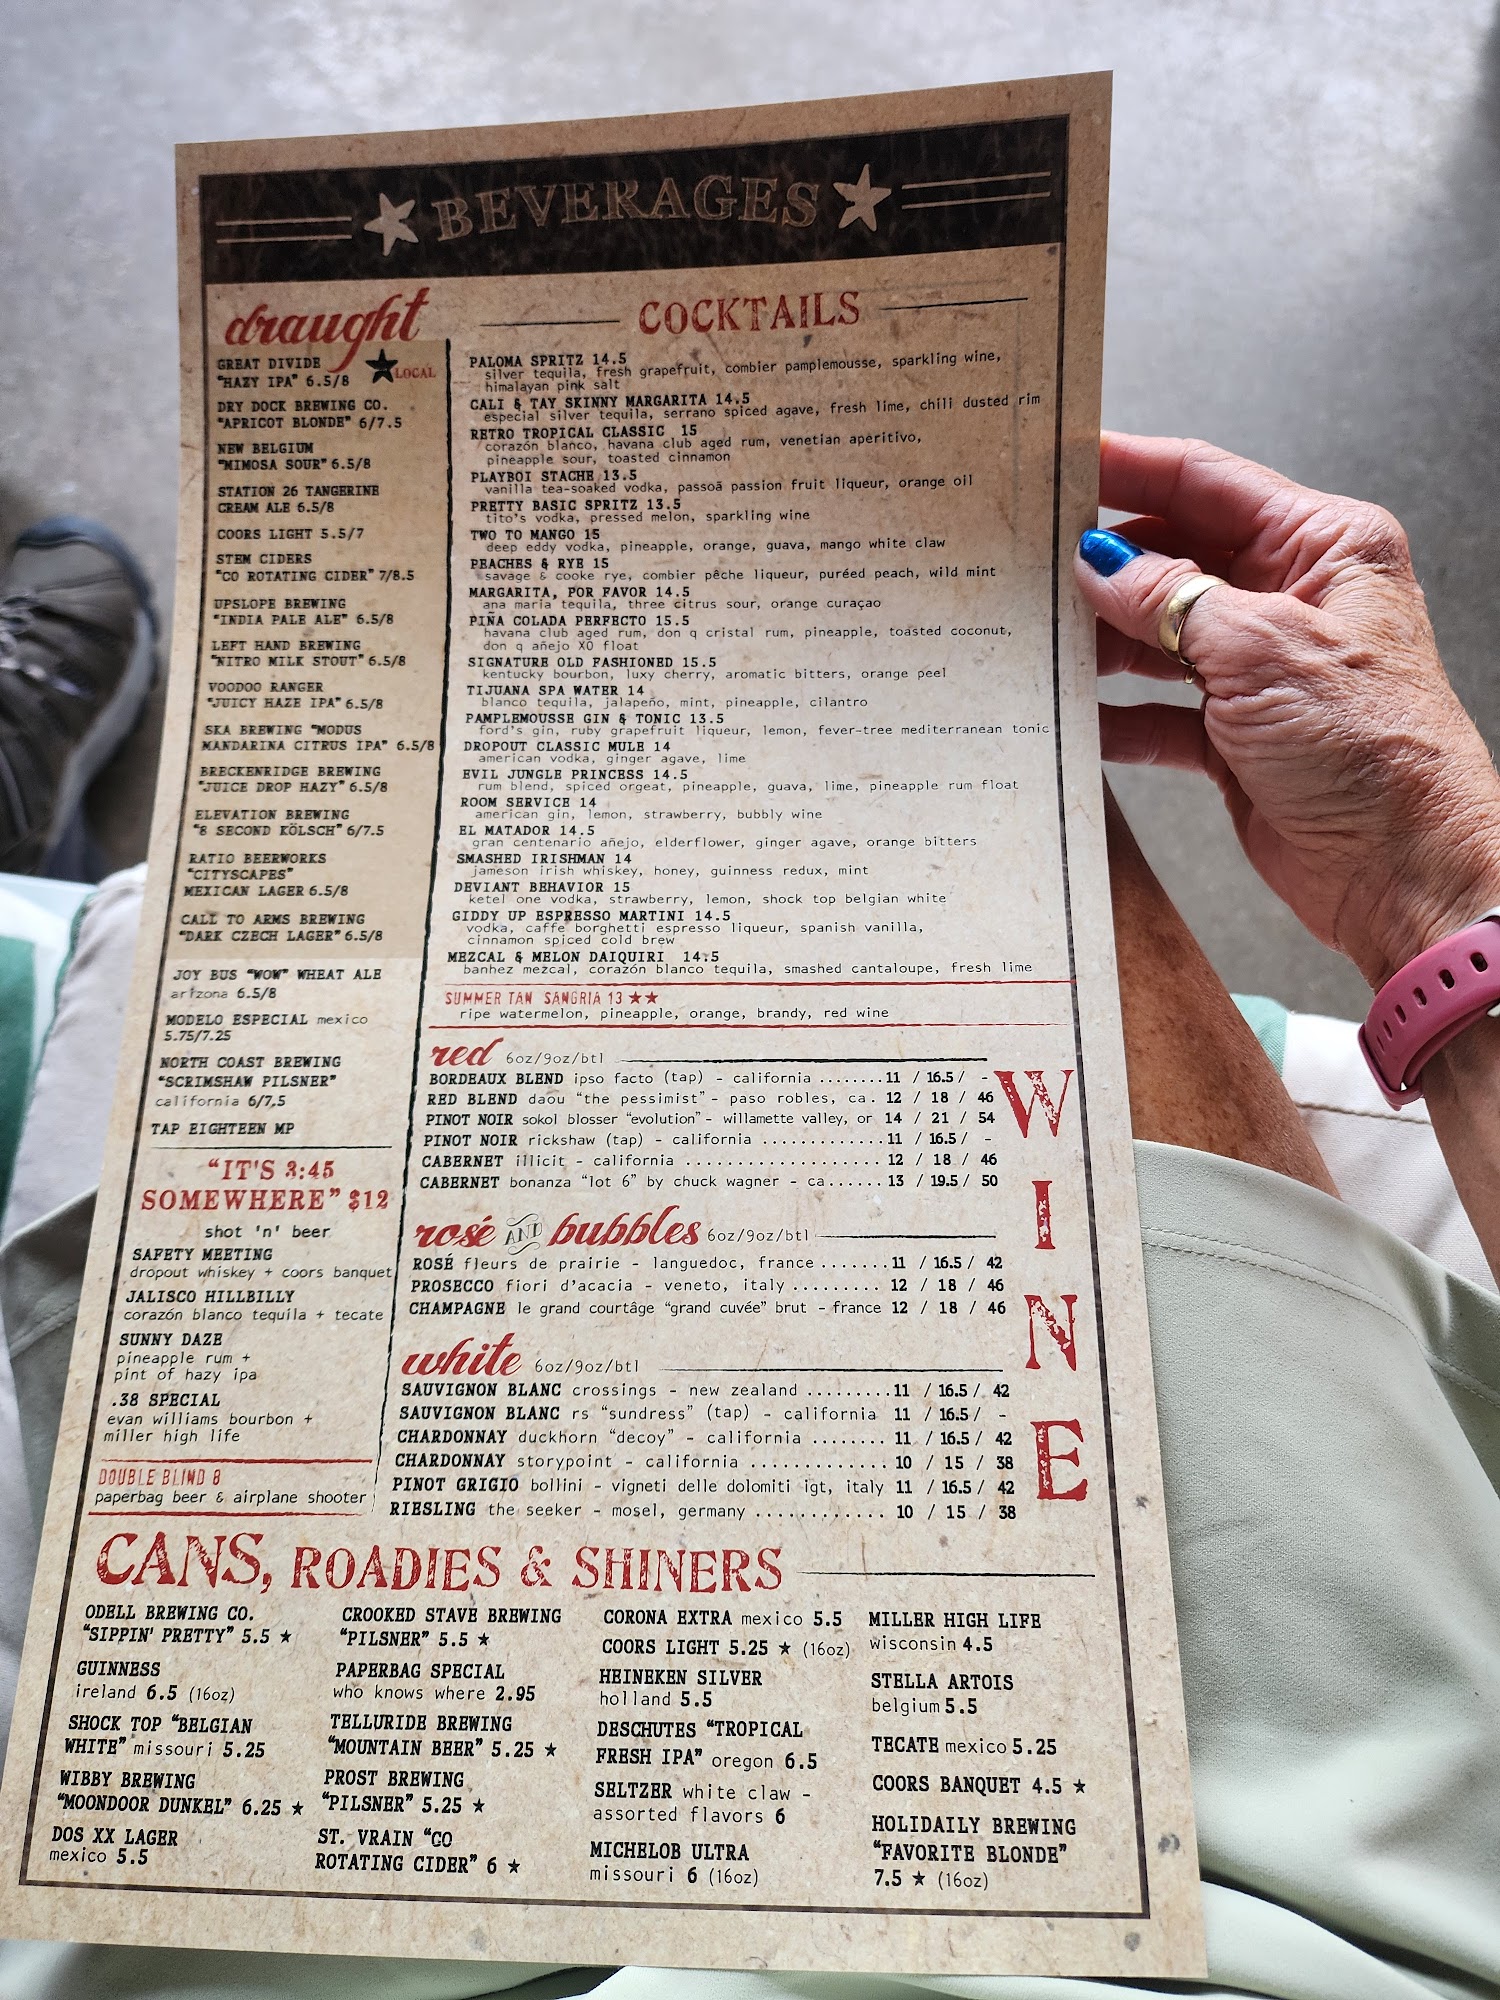 BEVERAGES
draught
LOCAL
GREAT DIVIDE
"HAZY IPA" 6.5/8
DRY DOCK BREWING CO.
"APRICOT BLONDE" 6/7.5
NEW BELGIUM
"MIMOSA SOUR" 6.5/8
STATION 26 TANGERINE
CREAM ALE 6.5/8
COORS LIGHT 5.5/7
STEM CIDERS
"CO ROTATING CIDER" 7/8.5
UPSLOPE BREWING
"INDIA PALE ALE" 6.5/8
LEFT HAND BREWING
"NITRO MILK STOUT" 6.5/8
VOODOO RANGER
"JUICY HAZE IPA" 6.5/8
SKA BREWING "MODUS
MANDARINA CITRUS IPA" 6.5/8
BRECKENRIDGE BREWING
"JUICE DROP HAZY" 6.5/8
ELEVATION BREWING
"8 SECOND KÖLSCH" 6/7.5
RATIO BEERWORKS
"CITYSCAPES"
MEXICAN LAGER 6.5/8
CALL TO ARMS BREWING
"DARK CZECH LAGER" 6.5/8
JOY BUS "WOW" WHEAT ALE
arizona 6.5/8
MODELO ESPECIAL mexico
5.75/7.25
NORTH COAST BREWING
"SCRIMSHAW PILSNER"
california 6/7.5
TAP EIGHTEEN MP
"IT'S 3:45
SOMEWHERE" $12
shot 'n' beer
SAFETY MEETING
dropout whiskey + coors banquet
JALISCO HILLBILLY
corazón blanco tequila + tecate
SUNNY DAZE
pineapple rum +
pint of hazy ipa
.38 SPECIAL
evan williams bourbon +
miller high life
DOUBLE BLIND 8
paperbag beer & airplane shooter
COCKTAILS
PALOMA SPRITZ 14.5
silver tequila, fresh grapefruit, combier pamplemousse, sparkling wine,
himalayan pink salt
CALI & TAY SKINNY MARGARITA 14.5
especial silver tequila, serrano spiced agave, fresh lime, chili dusted rim
RETRO TROPICAL CLASSIC 15
corazón blanco, havana club aged rum, venetian aperitivo,
pineapple sour, toasted cinnamon
PLAYBOI STACHE 13.5
vanilla tea-soaked vodka, passoã passion fruit liqueur, orange oil
PRETTY BASIC SPRITZ 13.5
tito's vodka, pressed melon, sparkling wine
TWO TO MANGO 15
deep eddy vodka, pineapple, orange, guava, mango white claw
PEACHES & RYE 15
savage & cooke rye, combier pêche liqueur, puréed peach, wild mint
MARGARITA, POR FAVOR 14.5
ana maria tequila, three citrus sour, orange curaçao
PIÑA COLADA PERFECTO 15.5
havana club aged rum, don q cristal rum, pineapple, toasted coconut,
don q añejo XO float
SIGNATURE OLD FASHIONED 15.5
kentucky bourbon, luxy cherry, aromatic bitters, orange peel
TIJUANA SPA WATER 14
blanco tequila, jalapeño, mint, pineapple, cilantro
PAMPLEMOUSSE GIN & TONIC 13.5
ford's gin, ruby grapefruit liqueur, lemon, fever-tree mediterranean tonic
DROPOUT CLASSIC MULE 14
american vodka, ginger agave, lime
EVIL JUNGLE PRINCESS 14.5
rum blend, spiced orgeat, pineapple, guava, lime, pineapple rum float
ROOM SERVICE 14
american gin, lemon, strawberry, bubbly wine
EL MATADOR 14.5
gran centenario añejo, elderflower, ginger agave, orange bitters
SMASHED IRISHMAN 14
jameson irish whiskey, honey, guinness redux, mint
DEVIANT BEHAVIOR 15
ketel one vodka, strawberry, lemon, shock top belgian white
GIDDY UP ESPRESSO MARTINI 14.5
vodka, caffe borghetti espresso liqueur, spanish vanilla,
cinnamon spiced cold brew
MEZCAL & MELON DAIQUIRI 14.5
banhez mezcal, corazón blanco tequila, smashed cantaloupe, fresh lime
SUMMER TAN SANGRIA 13 ★★
ripe watermelon, pineapple, orange, brandy, red wine
WINE
red 6oz/9oz/btl
BORDEAUX BLEND ipso facto (tap) - california ........11 / 16.5 / -
RED BLEND daou "the pessimist" - paso robles, ca. 12 / 18 / 46
PINOT NOIR sokol blosser "evolution" - willamette valley, or 14 / 21 / 54
PINOT NOIR rickshaw (tap) - california .............11 / 16.5 / -
CABERNET illicit - california ..................... 12 / 18 / 46
CABERNET bonanza "lot 6" by chuck wagner - ca...... 13 / 19.5 / 50
rosé AND bubbles 6oz/9oz/btl
ROSÉ fleurs de prairie - languedoc, france .......11 / 16.5 / 42
PROSECCO fiori d'acacia - veneto, italy .......... 12 / 18 / 46
CHAMPAGNE le grand courtâge "grand cuvée" brut - france 12 / 18 / 46
white 6oz/9oz/btl
SAUVIGNON BLANC crossings - new zealand .........11 / 16.5 / 42
SAUVIGNON BLANC rs "sundress" (tap) - california 11 / 16.5 / -
CHARDONNAY duckhorn "decoy" - california ........ 11 / 16.5 / 42
CHARDONNAY storypoint - california ............. 10 / 15 / 38
PINOT GRIGIO bollini - vigneti delle dolomiti igt, italy 11 / 16.5 / 42
RIESLING the seeker - mosel, germany ............ 10 / 15 / 38
CANS, ROADIES & SHINERS
ODELL BREWING CO.
"SIPPIN' PRETTY" 5.5 ★
GUINNESS
ireland 6.5 (16oz)
SHOCK TOP "BELGIAN
WHITE" missouri 5.25
WIBBY BREWING
"MOONDOOR DUNKEL" 6.25 ★
DOS XX LAGER
mexico 5.5
CROOKED STAVE BREWING
"PILSNER" 5.5 ★
PAPERBAG SPECIAL
who knows where 2.95
TELLURIDE BREWING
"MOUNTAIN BEER" 5.25 ★
PROST BREWING
"PILSNER" 5.25 ★
ST. VRAIN "CO
ROTATING CIDER" 6 ★
CORONA EXTRA mexico 5.5
COORS LIGHT 5.25 ★ (16oz)
HEINEKEN SILVER
holland 5.5
DESCHUTES "TROPICAL
FRESH IPA" oregon 6.5
SELTZER white claw -
assorted flavors 6
MICHELOB ULTRA
missouri 6 (16oz)
MILLER HIGH LIFE
wisconsin 4.5
STELLA ARTOIS
belgium 5.5
TECATE mexico 5.25
COORS BANQUET 4.5 ★
HOLIDAILY BREWING
"FAVORITE BLONDE"
7.5 ★ (16oz)